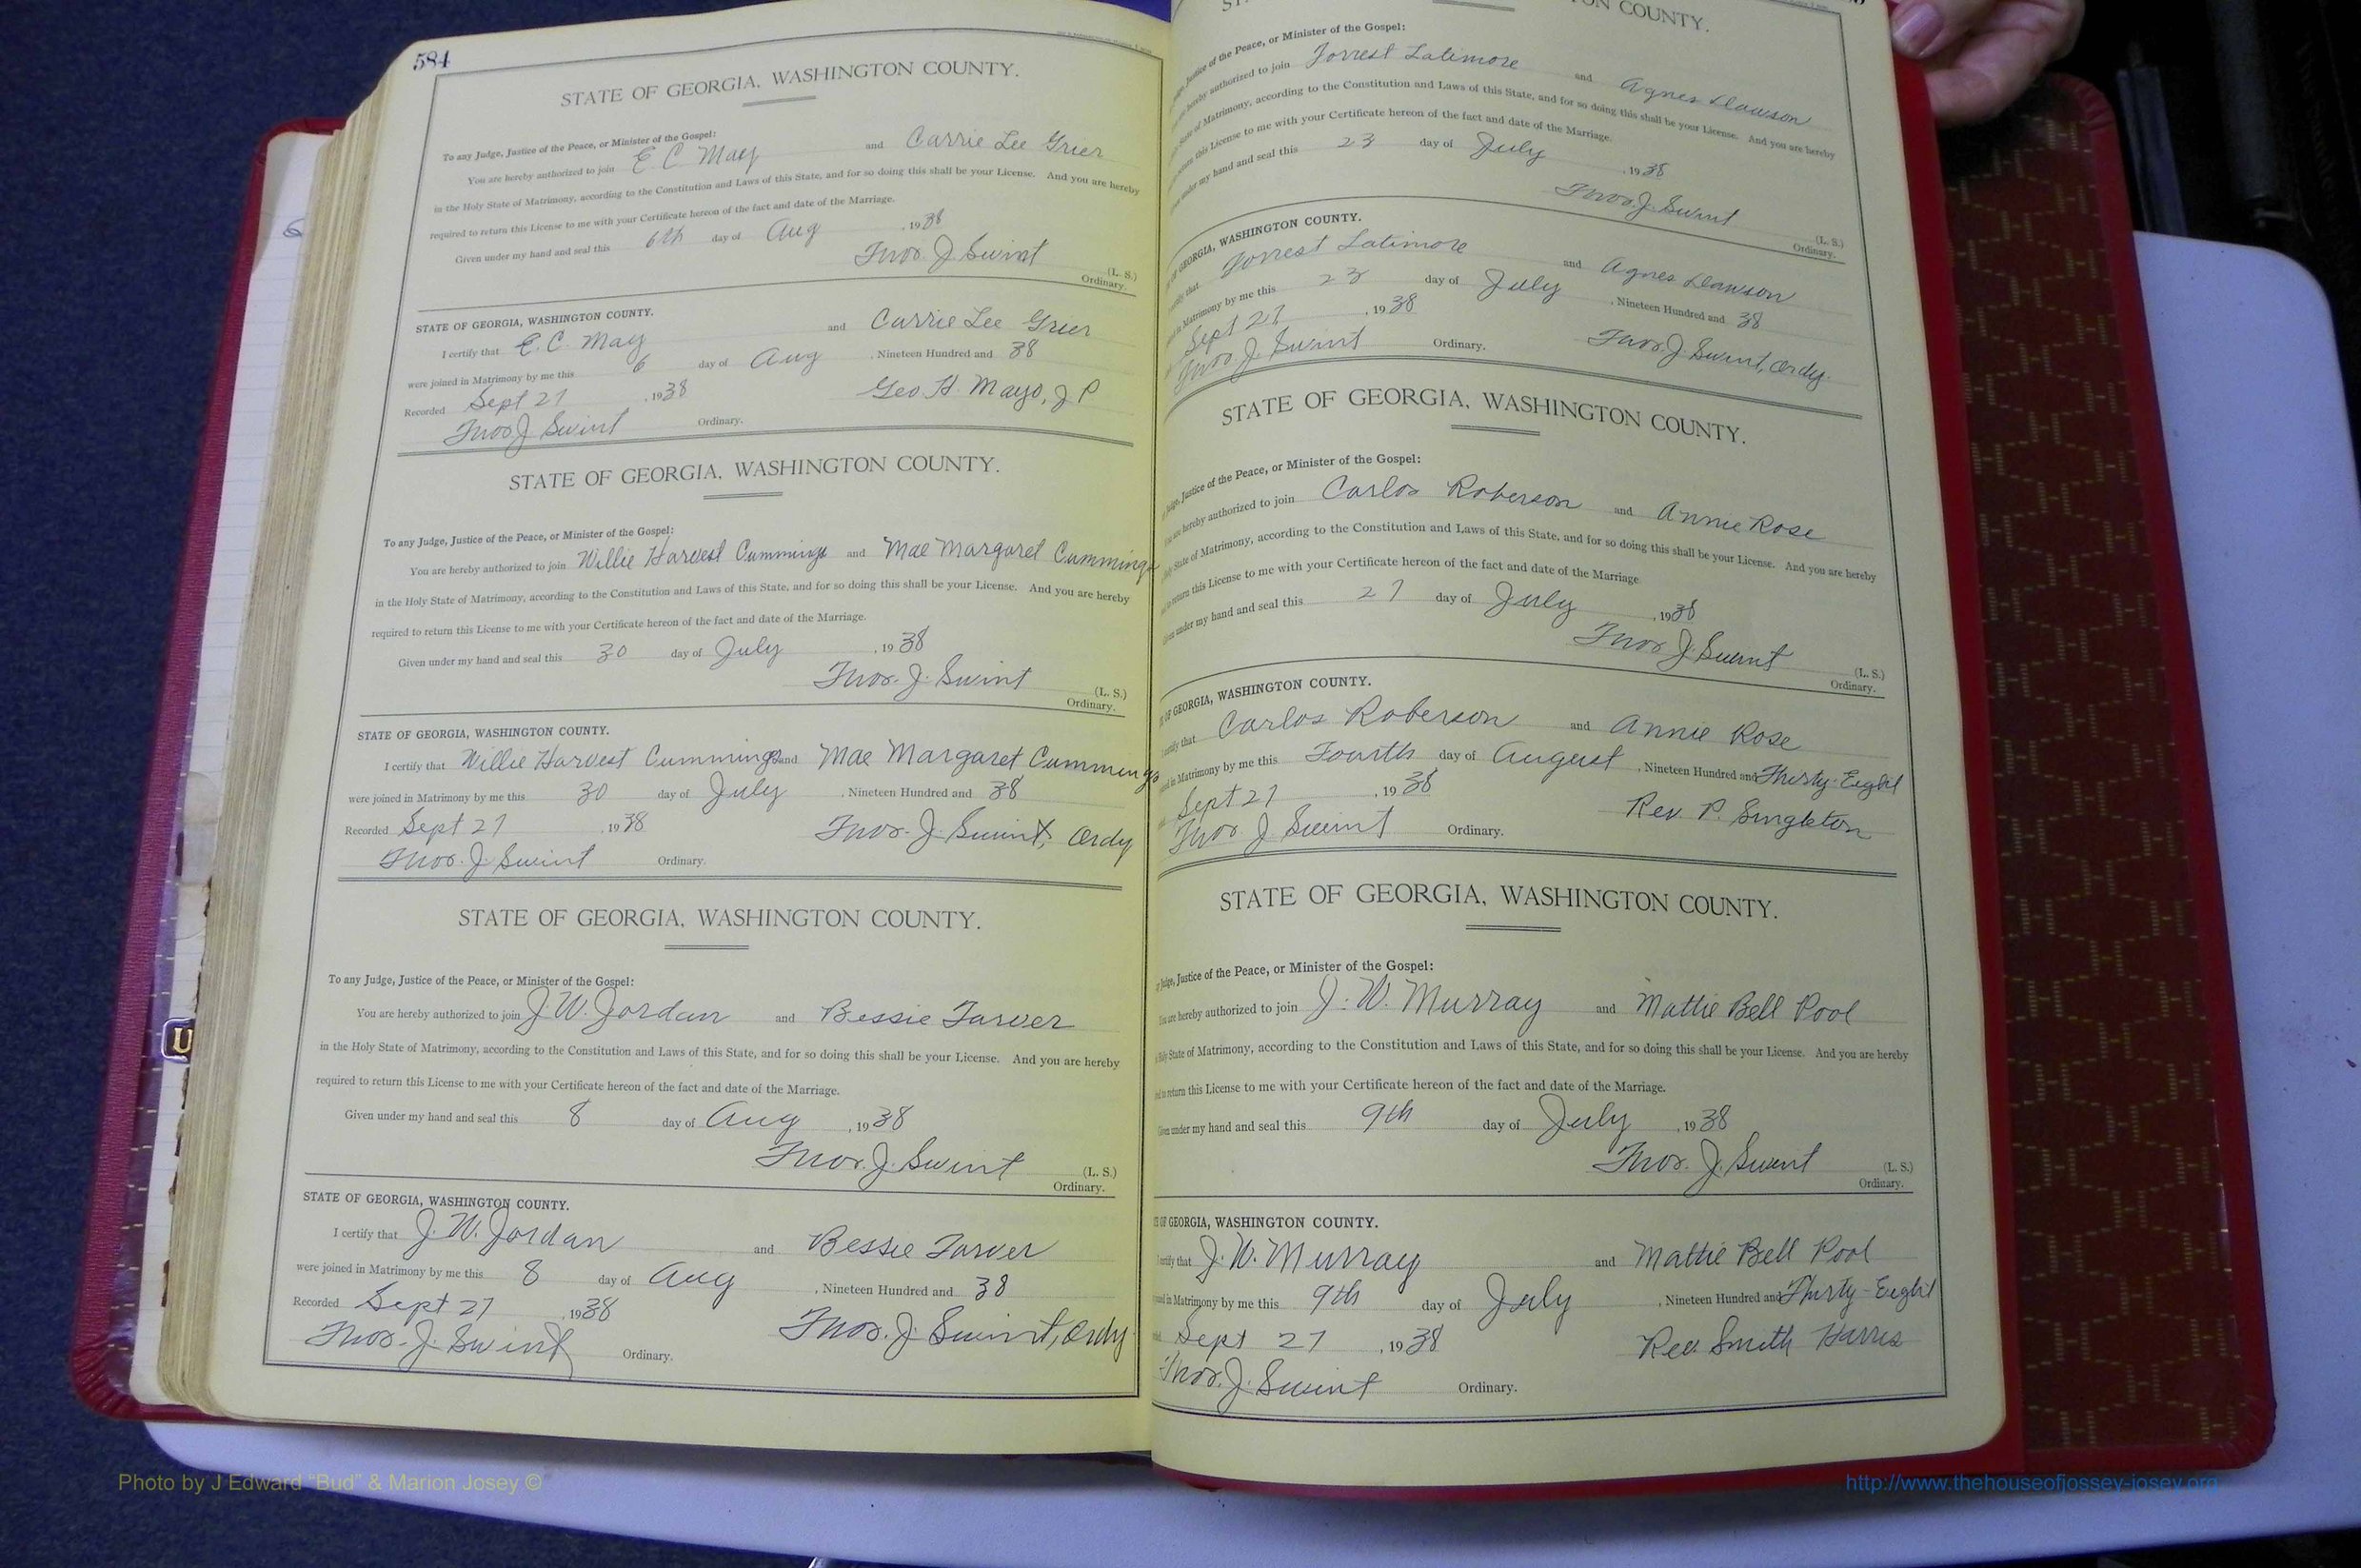 584
STATE OF GEORGIA, WASHINGTON COUNTY.
To any Judge, Justice of the Peace, or Minister of the Gospel:
You are hereby authorized to join E. C. May and Carrie Lee Grier
in the Holy State of Matrimony, according to the Constitution and Laws of this State, and for so doing this shall be your License. And you are hereby
required to return this License to me with your Certificate hereon of the fact and date of the Marriage.
Given under my hand and seal this 6th day of Aug , 1938
Thos. J. Swint (L. S.)
Ordinary.
STATE OF GEORGIA, WASHINGTON COUNTY.
I certify that E. C. May and Carrie Lee Grier
were joined in Matrimony by me this 6 day of Aug , Nineteen Hundred and 38
Recorded Sept 27 , 1938 Geo. H. Mayo, J P
Thos. J Swint Ordinary.
STATE OF GEORGIA, WASHINGTON COUNTY.
To any Judge, Justice of the Peace, or Minister of the Gospel:
You are hereby authorized to join Willie Harvest Cummings and Mae Margaret Cummings
in the Holy State of Matrimony, according to the Constitution and Laws of this State, and for so doing this shall be your License. And you are hereby
required to return this License to me with your Certificate hereon of the fact and date of the Marriage.
Given under my hand and seal this 30 day of July , 1938
Thos. J. Swint (L. S.)
Ordinary.
STATE OF GEORGIA, WASHINGTON COUNTY.
I certify that Willie Harvest Cummings and Mae Margaret Cummings
were joined in Matrimony by me this 30 day of July , Nineteen Hundred and 38
Recorded Sept 27 , 1938 Thos. J. Swint, Ordy
Thos. J. Swint Ordinary.
STATE OF GEORGIA, WASHINGTON COUNTY.
To any Judge, Justice of the Peace, or Minister of the Gospel:
You are hereby authorized to join J. W. Jordan and Bessie Tarver
in the Holy State of Matrimony, according to the Constitution and Laws of this State, and for so doing this shall be your License. And you are hereby
required to return this License to me with your Certificate hereon of the fact and date of the Marriage.
Given under my hand and seal this 8 day of Aug , 1938
Thos. J. Swint (L. S.)
Ordinary.
STATE OF GEORGIA, WASHINGTON COUNTY.
I certify that J. W. Jordan and Bessie Tarver
were joined in Matrimony by me this 8 day of Aug , Nineteen Hundred and 38
Recorded Sept 27 , 1938 Thos. J. Swint, Ordy
Thos. J. Swint Ordinary.
COUNTY.
Judge, Justice of the Peace, or Minister of the Gospel:
hereby authorized to join Forrest Latimore and Agnes Dawson
State of Matrimony, according to the Constitution and Laws of this State, and for so doing this shall be your License. And you are hereby
return this License to me with your Certificate hereon of the fact and date of the Marriage.
under my hand and seal this 23 day of July , 1938
Thos. J. Swint (L. S.)
Ordinary.
OF GEORGIA, WASHINGTON COUNTY.
that Forrest Latimore and Agnes Dawson
in Matrimony by me this 23 day of July , Nineteen Hundred and 38
Sept 27 , 1938 Thos. J Swint, Ordy.
Thos. J. Swint Ordinary.
STATE OF GEORGIA, WASHINGTON COUNTY.
Judge, Justice of the Peace, or Minister of the Gospel:
are hereby authorized to join Carlos Roberson and Annie Rose
Holy State of Matrimony, according to the Constitution and Laws of this State, and for so doing this shall be your License. And you are hereby
to return this License to me with your Certificate hereon of the fact and date of the Marriage
Given under my hand and seal this 27 day of July , 1938
Thos. J. Swint (L. S.)
Ordinary.
OF GEORGIA, WASHINGTON COUNTY.
certify that Carlos Roberson and Annie Rose
in Matrimony by me this Fourth day of August , Nineteen Hundred and Thirty-Eight
Sept 27 , 1938 Rev. P. Singleton
Thos. J Swint Ordinary.
STATE OF GEORGIA, WASHINGTON COUNTY.
Judge, Justice of the Peace, or Minister of the Gospel:
You are hereby authorized to join J. W. Murray and Mattie Bell Pool
Holy State of Matrimony, according to the Constitution and Laws of this State, and for so doing this shall be your License. And you are hereby
to return this License to me with your Certificate hereon of the fact and date of the Marriage.
Given under my hand and seal this 9th day of July , 1938
Thos. J. Swint (L. S.)
Ordinary.
OF GEORGIA, WASHINGTON COUNTY.
certify that J. W. Murray and Mattie Bell Pool
in Matrimony by me this 9th day of July , Nineteen Hundred and Thirty-Eight
Sept 27 , 1938 Rev. Smith Harris
Thos. J. Swint Ordinary.
U
Photo by J Edward “Bud” & Marion Josey ©
http://www.thehouseofjossey-josey.org